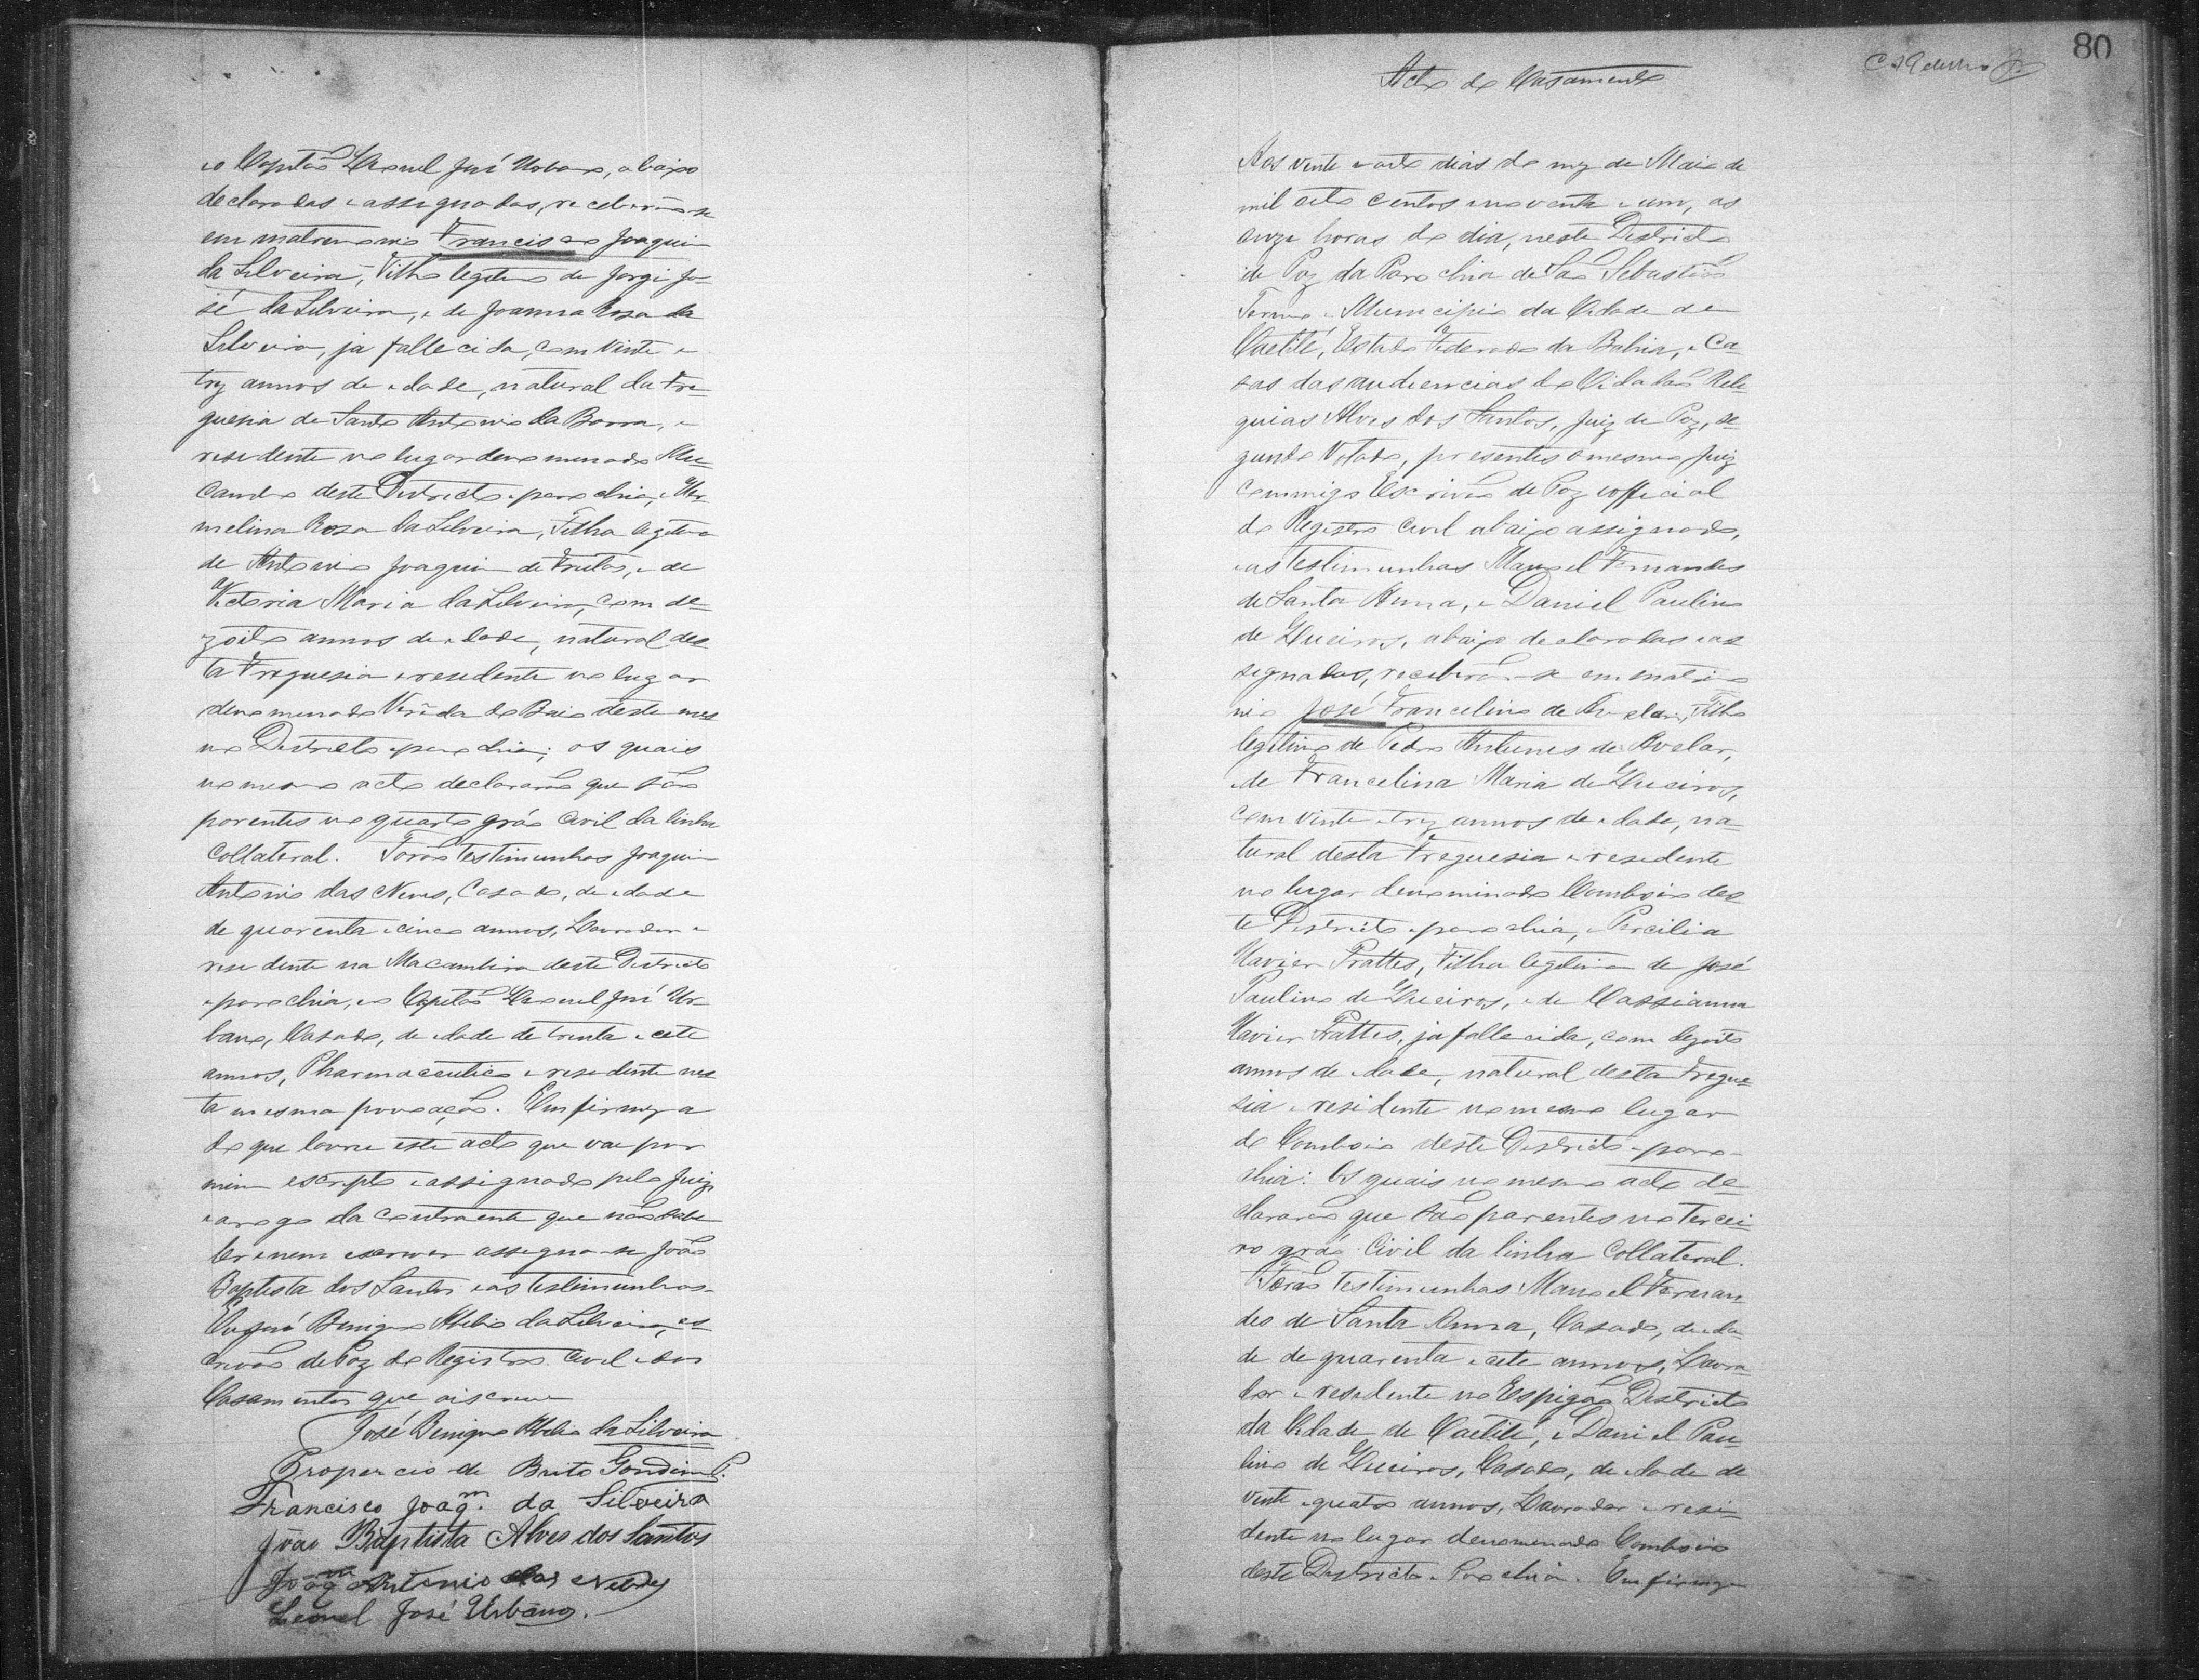 e o Capitão Leonel José Urbano, abaixo
declarados e assignados, receberão-se
em matrimonio Francisco Joaquim
da Silveira, Filho legitimo de Jorge Jo-
sé da Silveira, e de Joanna Rosa da
Silveira, ja fallecida, com vinte e
trez annos de edade, natural da Fre-
guesia de Santo Antonio da Barra, e
residente no lugar denominado
deste Districto e parochia, e Her-
melina Rosa da Silveira, Filha legitima
de Antonio Joaquim de Freitas, e de
Victoria Maria da Silveira, com de-
zoito annos de edade, natural des-
ta Freguesia e residente no lugar
denominado Verêda do Baio deste mes-
mo Districto e parochia; os quais
no mesmo acto declararão que são
parentes no quarto gráo Civil da linha
Collateral. Forão testimunhas Joaquim
Antonio das Neves, Casado, de edade
de quarenta e cinco annos, Lavrador e
residente na Macambira deste Districto
e parochia, e o Capitão Leonel José Ur-
bano, Casado, de edade de trinta e cete
annos, Pharmaceutico e residente nes-
ta mesma povoação. Em firmeza
do que lavrei este acto que vae por
mim escripto e assignado pelo Juiz
e a rogo da Contraente que não sabe
ler e nem escrever assigna-se João
Baptista dos Santos e as testimunhas.
Eu José Benigno Abilio da Silveira, es-
crivão de Paz do Registro Civil e dos
Casamentos que o iscrevi
José Benigno Abilio da Silveira
Propercio de Brito Gondim P.
Francisco Joaqm. da Silveira
João Baptista Alves dos Santos
Joaqm Antonio das Neves
Leonel José Urbano.
80
Acto de Casamento
Aos vinte e oito dias do mez de Maio de
mil oito centos e noventa e um, as
onze horas do dia, neste Districto
de Paz da Parochia de São Sebastião
Termo e Municipio da Cidade de
Caetité, Estado Federado da Bahia, e Ca-
sas das audiencias do Cidadão Reli-
quias Alves dos Santos, Juiz de Paz, se-
gundo Votado, presentes o mesmo Juiz
commigo Escrivão de Paz e official
do Registro Civil abaixo assignado,
e as testimunhas Manoel Fernandes
de Santa Anna, e Daniel Paulino
de Queiros, abaixo declarados e as-
segnados, receberão-se em matrimo-
nio José Francelino de Avelar, Filho
legitimo de Pedro Antunes de Avelar,
e de Francelina Maria de Queiros,
com vinte e trez annos de edade, na-
tural desta Freguesia e residente
no lugar denominado Comboio des-
te Districto e parochia, e Percilia
Xavier Prattes, Filha legitima de José
Paulino de Queiros, e de Cassianna
Xavier Prattes, ja fallecida, com dezoito
annos de edade, natural desta Fregue-
sia e residente no mesmo lugar
do Comboio deste Districto e paro-
chia: Os quais no mesmo acto de-
clararão que são parentes no tercei-
ro gráo Civil da linha Collateral.
Forão testimunhas Manoel Fernan-
des de Santa Anna, Casado, de eda-
de de quarenta e cete annos, Lavra-
dor e residente no Espigão Districto
da Cidade de Caetité, e Daniel Pau-
lino de Queiros, Casado, de edade de
vinte e quatro annos, Lavrador e resi-
dente no lugar denominado Comboio
deste Districto e Parochia. Em firmeza